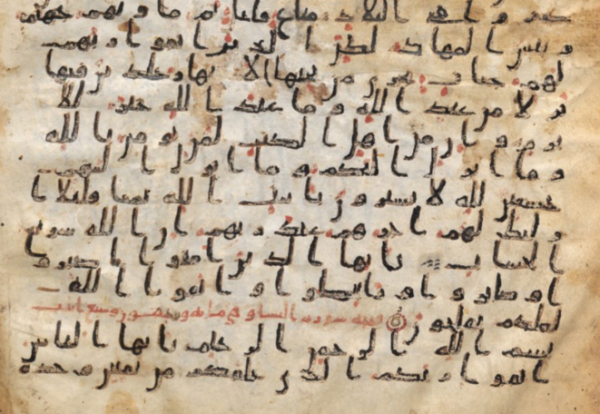 كفروا في البلاد متاع قليل ثم ماويهم جهنم
وبئس المهاد لكن الذين اتقوا ربهم
لهم جنات تجري من تحتها الانهار خلدين فيها
نزلا من عند الله وما عند الله خير للا
برار وان من اهل الكتب لمن يومن بالله
وما انزل اليكم وما انزل اليهم
خشعين لله لا يشترون بايت الله ثمنا قليلا ا
ولئك لهم اجرهم عند ربهم ان الله سريع
الحساب يايها الذين امنوا اصبروا
وصابروا ورابطوا واتقوا الله
لعلكم تفلحون سورة النسا وهي مائة
بسم الله الرحمن الرحيم يايها الناس
اتقوا ربكم الذي خلقكم من نفس وحدة